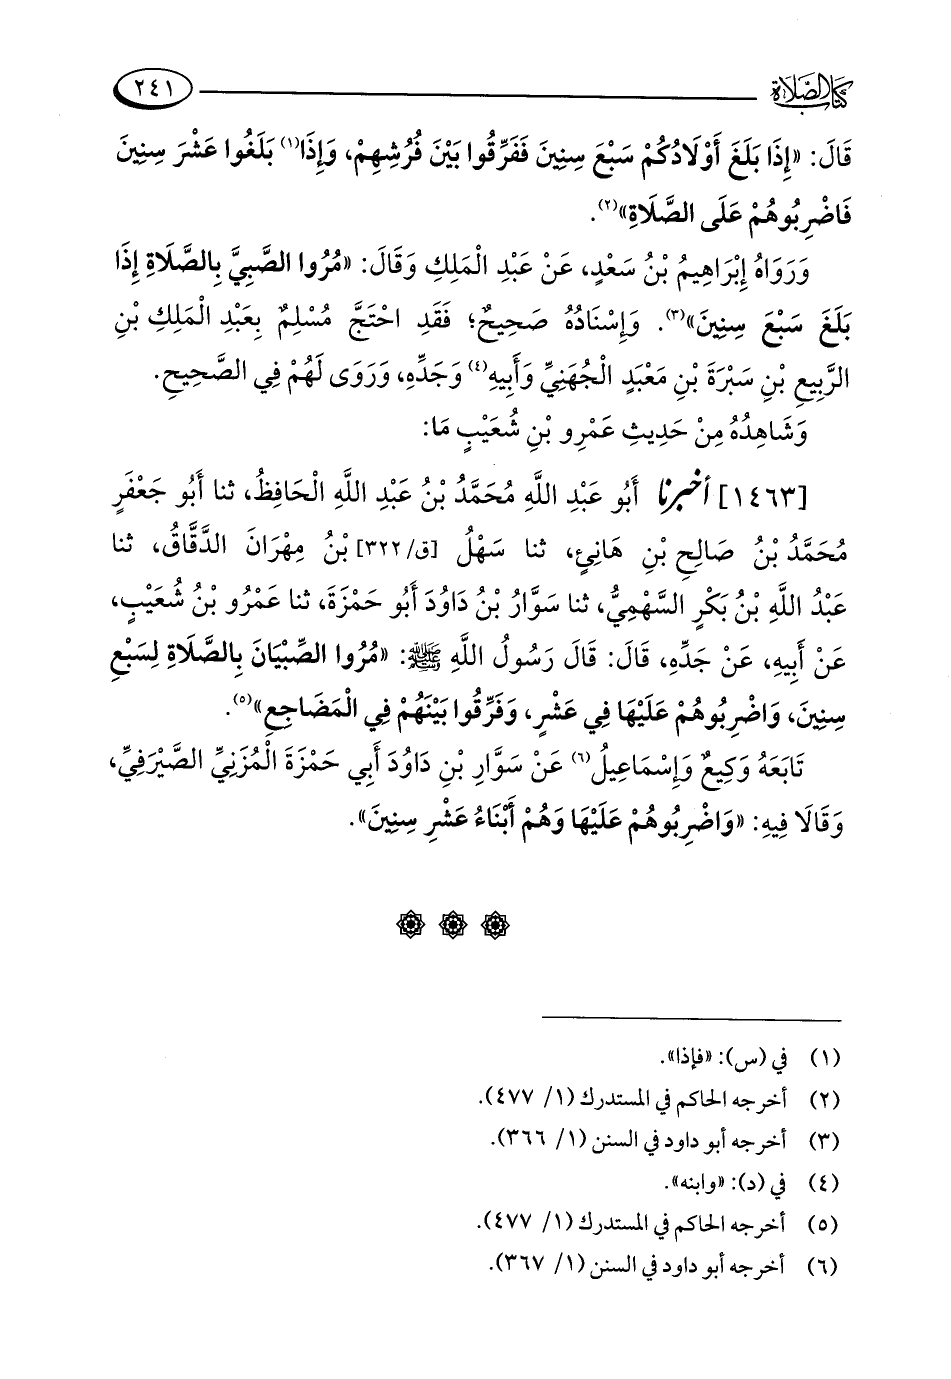 كتاب الصلاة
٢٤١
قَالَ: «إِذَا بَلَغَ أَوْلَادُكُمْ سَبْعَ سِنِينَ فَفَرِّقُوا بَيْنَ فُرُشِهِمْ، وَإِذَا(١) بَلَغُوا عَشْرَ سِنِينَ
فَاضْرِبُوهُمْ عَلَى الصَّلَاةِ»(٢).
وَرَوَاهُ إِبْرَاهِيمُ بْنُ سَعْدٍ، عَنْ عَبْدِ الْمَلِكِ وَقَالَ: «مُرُوا الصَّبِيَّ بِالصَّلَاةِ إِذَا
بَلَغَ سَبْعَ سِنِينَ»(٣). وَإِسْنَادُهُ صَحِيحٌ؛ فَقَدِ احْتَجَّ مُسْلِمٌ بِعَبْدِ الْمَلِكِ بْنِ
الرَّبِيعِ بْنِ سَبْرَةَ بْنِ مَعْبَدٍ الْجُهَنِيِّ وَأَبِيهِ(٤) وَجَدِّهِ، وَرَوَى لَهُمْ فِي الصَّحِيحِ.
وَشَاهِدُهُ مِنْ حَدِيثِ عَمْرِو بْنِ شُعَيْبٍ مَا:
[١٤٦٣] أخبرنا أَبُو عَبْدِ اللَّهِ مُحَمَّدُ بْنُ عَبْدِ اللَّهِ الْحَافِظُ، ثنا أَبُو جَعْفَرٍ
مُحَمَّدُ بْنُ صَالِحِ بْنِ هَانِئٍ، ثنا سَهْلُ [ق/٣٢٢] بْنُ مِهْرَانَ الدَّقَّاقُ، ثنا
عَبْدُ اللَّهِ بْنُ بَكْرٍ السَّهْمِيُّ، ثنا سَوَّارُ بْنُ دَاوُدَ أَبُو حَمْزَةَ، ثنا عَمْرُو بْنُ شُعَيْبٍ،
عَنْ أَبِيهِ، عَنْ جَدِّهِ، قَالَ: قَالَ رَسُولُ اللَّهِ ﷺ: «مُرُوا الصِّبْيَانَ بِالصَّلَاةِ لِسَبْعِ
سِنِينَ، وَاضْرِبُوهُمْ عَلَيْهَا فِي عَشْرٍ، وَفَرِّقُوا بَيْنَهُمْ فِي الْمَضَاجِعِ»(٥).
تَابَعَهُ وَكِيعٌ وَإِسْمَاعِيلُ(٦) عَنْ سَوَّارِ بْنِ دَاوُدَ أَبِي حَمْزَةَ الْمُزَنِيِّ الصَّيْرَفِيِّ،
وَقَالَا فِيهِ: «وَاضْرِبُوهُمْ عَلَيْهَا وَهُمْ أَبْنَاءُ عَشْرِ سِنِينَ».
(١) في (س): «فإذا».
(٢) أخرجه الحاكم في المستدرك (١/ ٤٧٧).
(٣) أخرجه أبو داود في السنن (١/ ٣٦٦).
(٤) في (د): «وابنه».
(٥) أخرجه الحاكم في المستدرك (١/ ٤٧٧).
(٦) أخرجه أبو داود في السنن (١/ ٣٦٧).